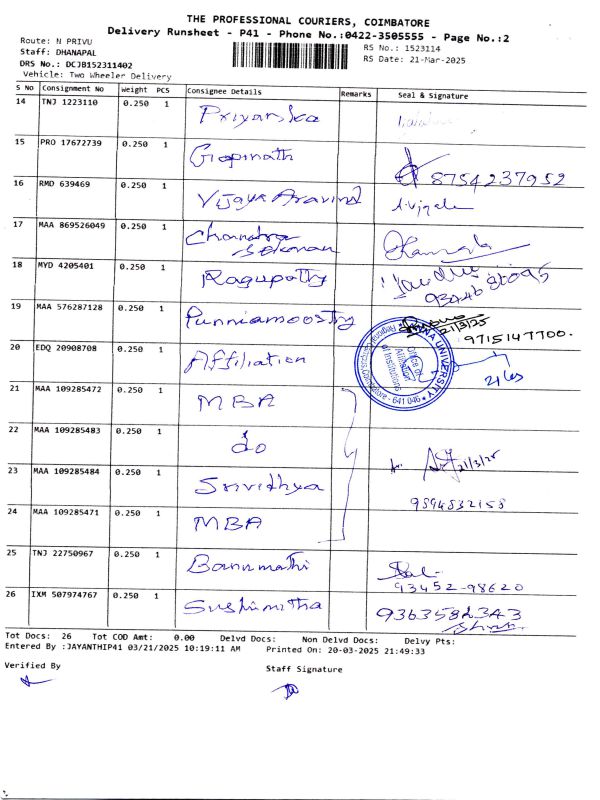 THE PROFESSIONAL COURIERS, COIMBATORE
Delivery Runsheet - P41 - Phone No.:0422-3505555 - Page No.:2
Route: N PRIVU
RS No.: 1523114
Staff: DHANAPAL
RS Date: 21-Mar-2025
DRS No.: DCJB152311402
Vehicle: Two Wheeler Delivery
S No Consignment No Weight PCS Consignee Details Remarks Seal & Signature
14 TNJ 1223110 0.250 1 Priyanka
15 PRO 17672739 0.250 1 Gopinath 8754237952
16 RMD 639469 0.250 1 Vijaya Aravind
17 MAA 869526049 0.250 1 Chandra Sekaran
18 MYD 4205401 0.250 1 Ragupathy
19 MAA 576287128 0.250 1 Punniamoostry 21/3/25
9715147700.
20 EDQ 20908708 0.250 1 Affiliation
ANNA UNIVERSITY
Regional Campus Coimbatore - 641 046
Office of Affiliation of Institutions
21 MAA 109285472 0.250 1 MBA
22 MAA 109285483 0.250 1 do
23 MAA 109285484 0.250 1 Srividhya 21/3/25
9894832158
24 MAA 109285471 0.250 1 MBA
25 TNJ 22750967 0.250 1 Banumathi
93452-98620
26 IXM 507974767 0.250 1 Sushimitha 9363582343
Tot Docs: 26 Tot COD Amt: 0.00 Delvd Docs: Non Delvd Docs: Delvy Pts:
Entered By :JAYANTHIP41 03/21/2025 10:19:11 AM Printed On: 20-03-2025 21:49:33
Verified By
Staff Signature